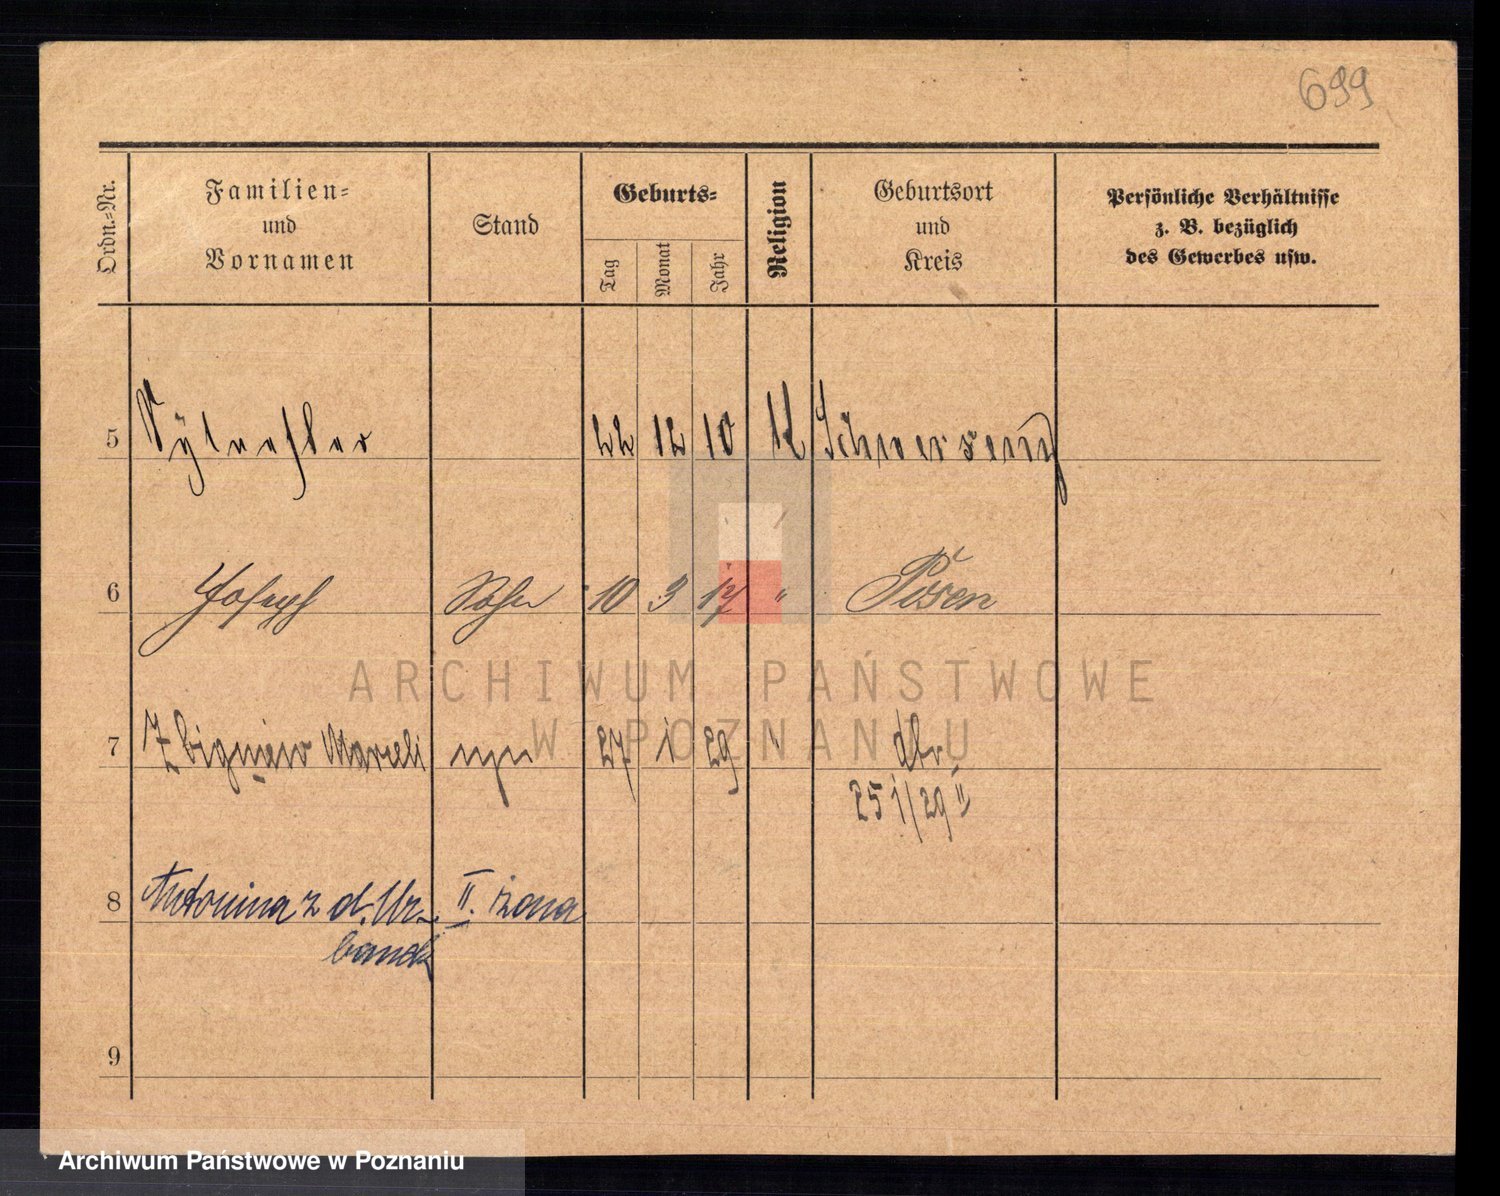 699
Ordn.=Nr.
Familien=
und
Vornamen
Stand
Geburts=
Tag
Monat
Jahr
Religion
Geburtsort
und
Kreis
Persönliche Verhältnisse
z. B. bezüglich
des Gewerbes usw.
5 Sylvester 22 12 10 K Schwersenz
6 Joseph Sohn 10 3 17 " Posen
7 Zbigniew Marceli syn 27 1 29
25 1/29
8 Antonina z d. Ur- II. żona
baniak
9
ARCHIWUM PAŃSTWOWE
W POZNANIU
Archiwum Państwowe w Poznaniu